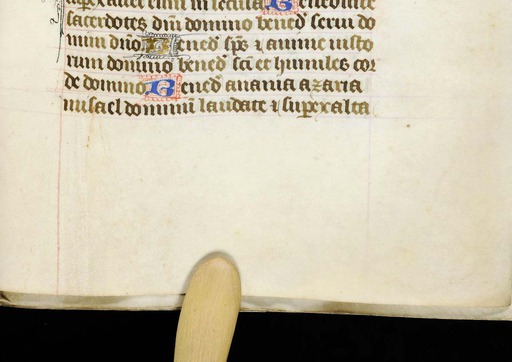 superaltet eum in secula Benedicite
sacerdotes dn̄i domino bened̄ serui do
mini dn̄o Bened̄ sp̄s ⁊ anime iusto
rum domino bened̄ sc̄i et humiles cor
de domino Bened̄ anania azaria
misael dominum laudate ⁊ superexalta